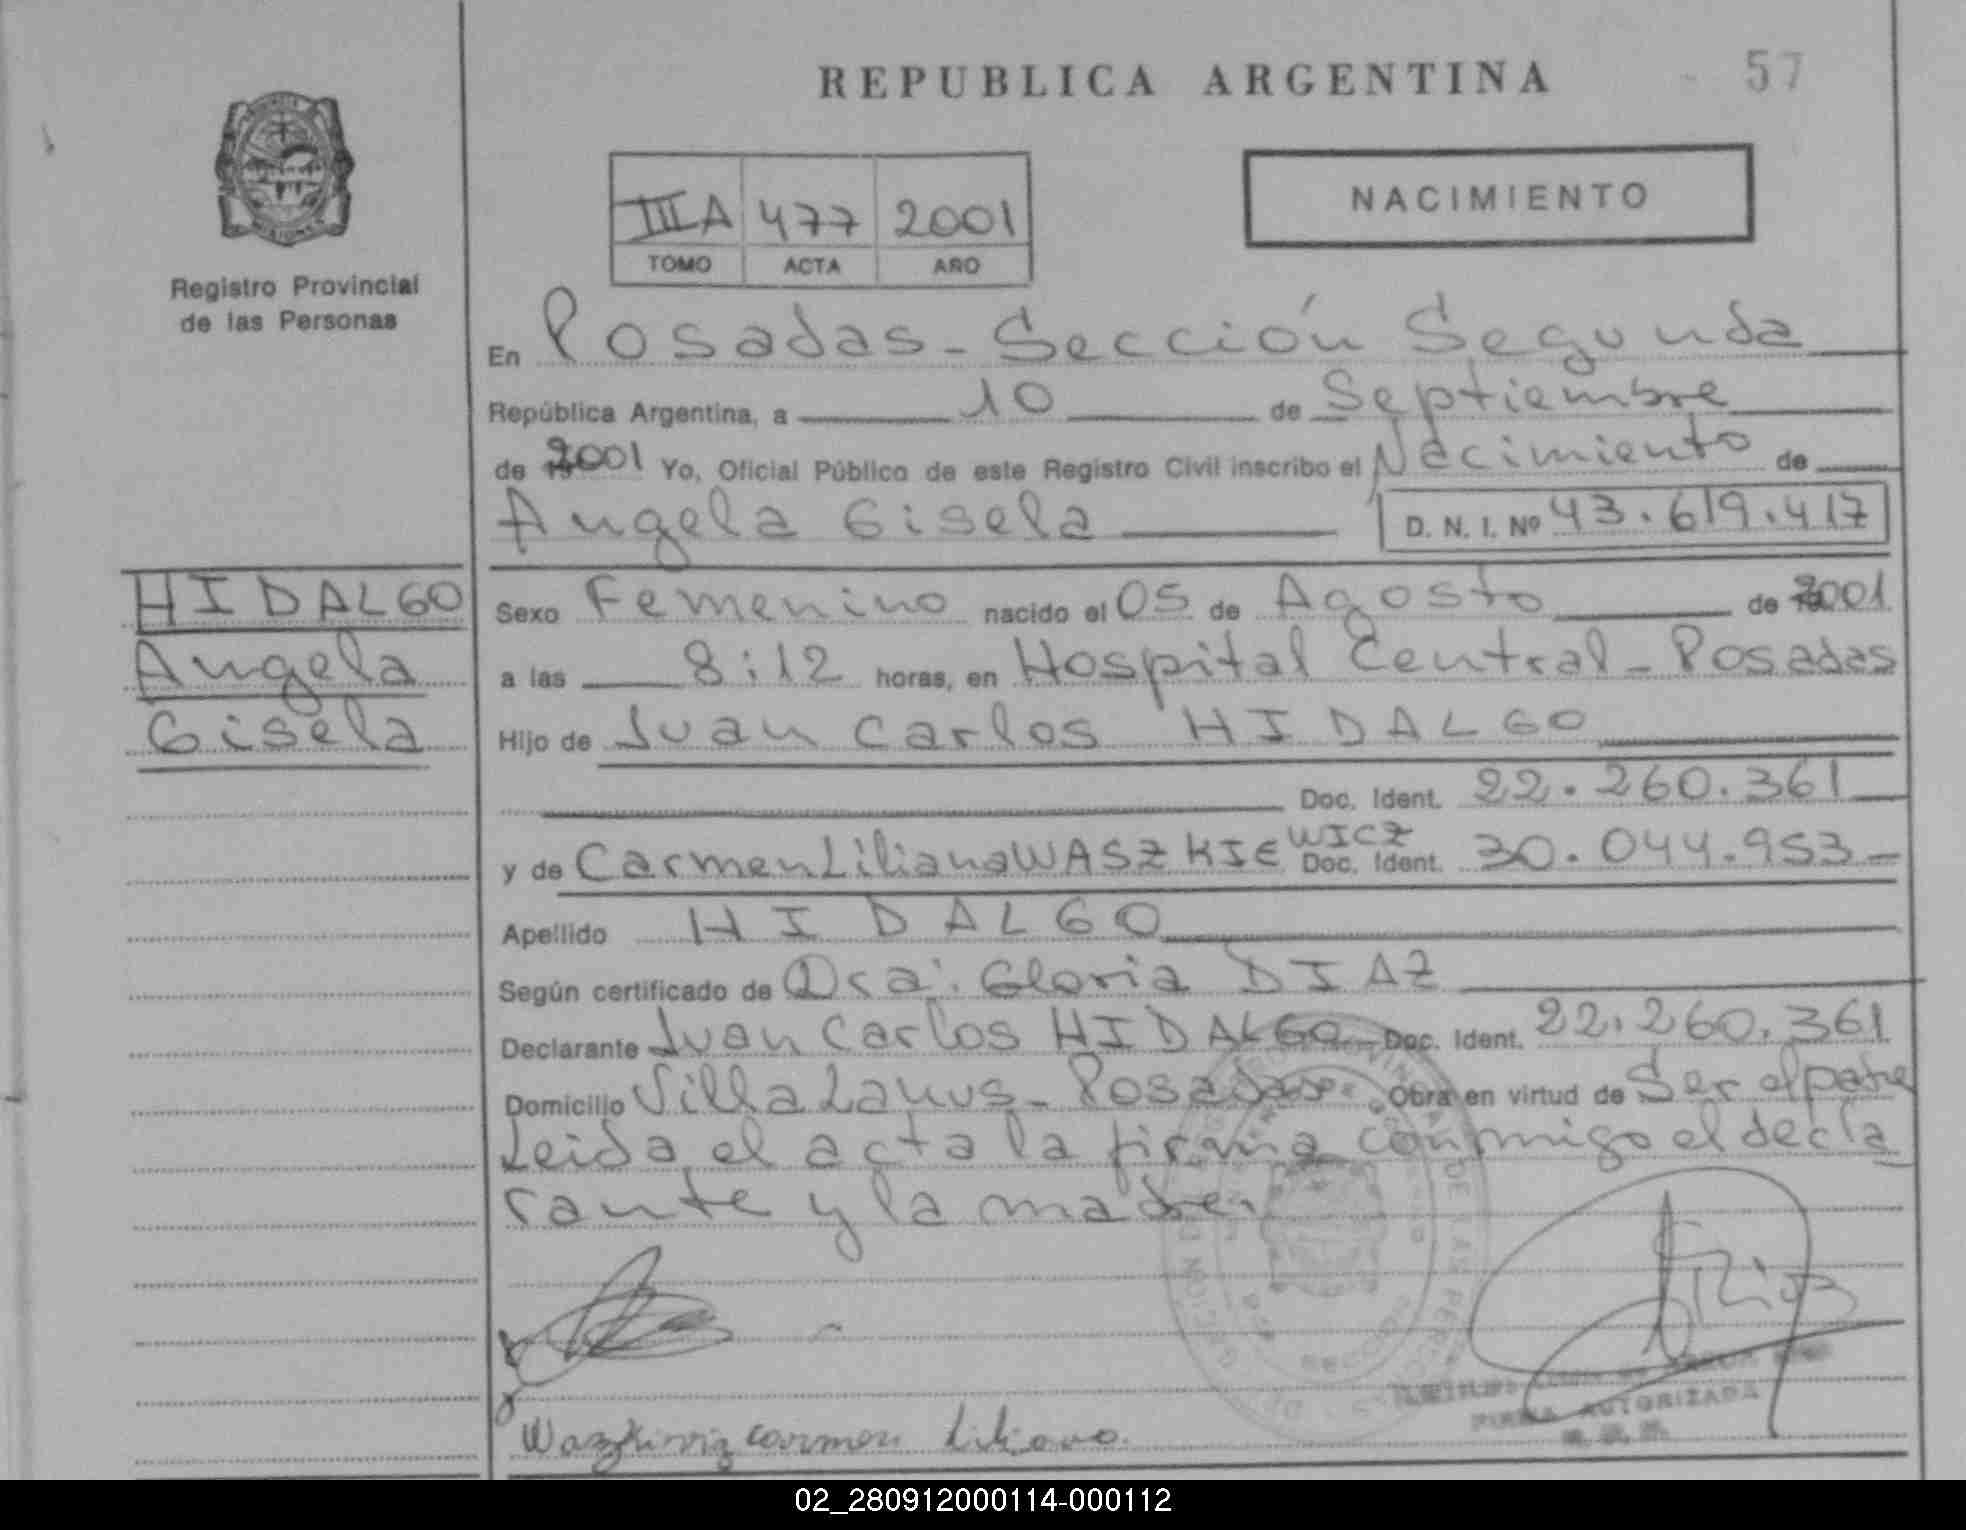 REPUBLICA ARGENTINA
57
Registro Provincial
de las Personas
IIIA 477 2001
TOMO ACTA AÑO
NACIMIENTO
En Posadas - Sección Segunda
República Argentina, a 10 de Septiembre
de 2001 Yo, Oficial Público de este Registro Civil inscribo el Nacimiento de
Angela Gisela D. N. I. Nº 43.619.417
HIDALGO
Angela
Gisela
Sexo Femenino nacido el 05 de Agosto de 2001
a las 8:12 horas, en Hospital Central - Posadas
Hijo de Juan Carlos HIDALGO
Doc. Ident. 22.260.361
y de Carmen Liliana WASZKIEWICZ Doc. Ident. 30.044.953 -
Apellido HIDALGO
Según certificado de Dra: Gloria DIAZ
Declarante Juan Carlos HIDALGO Doc. Ident. 22.260.361
Domicilio Villa Lanus - Posadas Obra en virtud de Ser el padre
Leida el acta la firma conmigo el decla
rante y la madre.
carmen Liliana
FIRMA AUTORIZADA
02_280912000114-000112